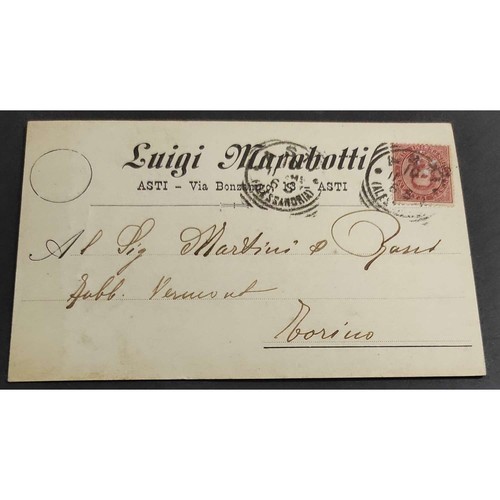 Luigi Marabotti
ASTI - Via Bonzanigo - ASTI
(ALESSANDRIA)
Al Sig Martini & Rossi
Fabb. Vermout
Torino